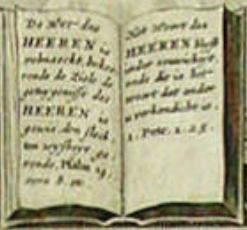 De Wet des
HEEREN is
volmaeckt, beke-
rende de Ziele de
getuygenisse des
HEEREN is
gewis, den slech-
ten wysheyt
vende, Psalm 19,
vers 8.
Het Woort des
HEEREN blyft
in der eeuwicheyt,
ende dit is het
woort dat onder
u verkondicht is.
1. Petr. 1. 25.